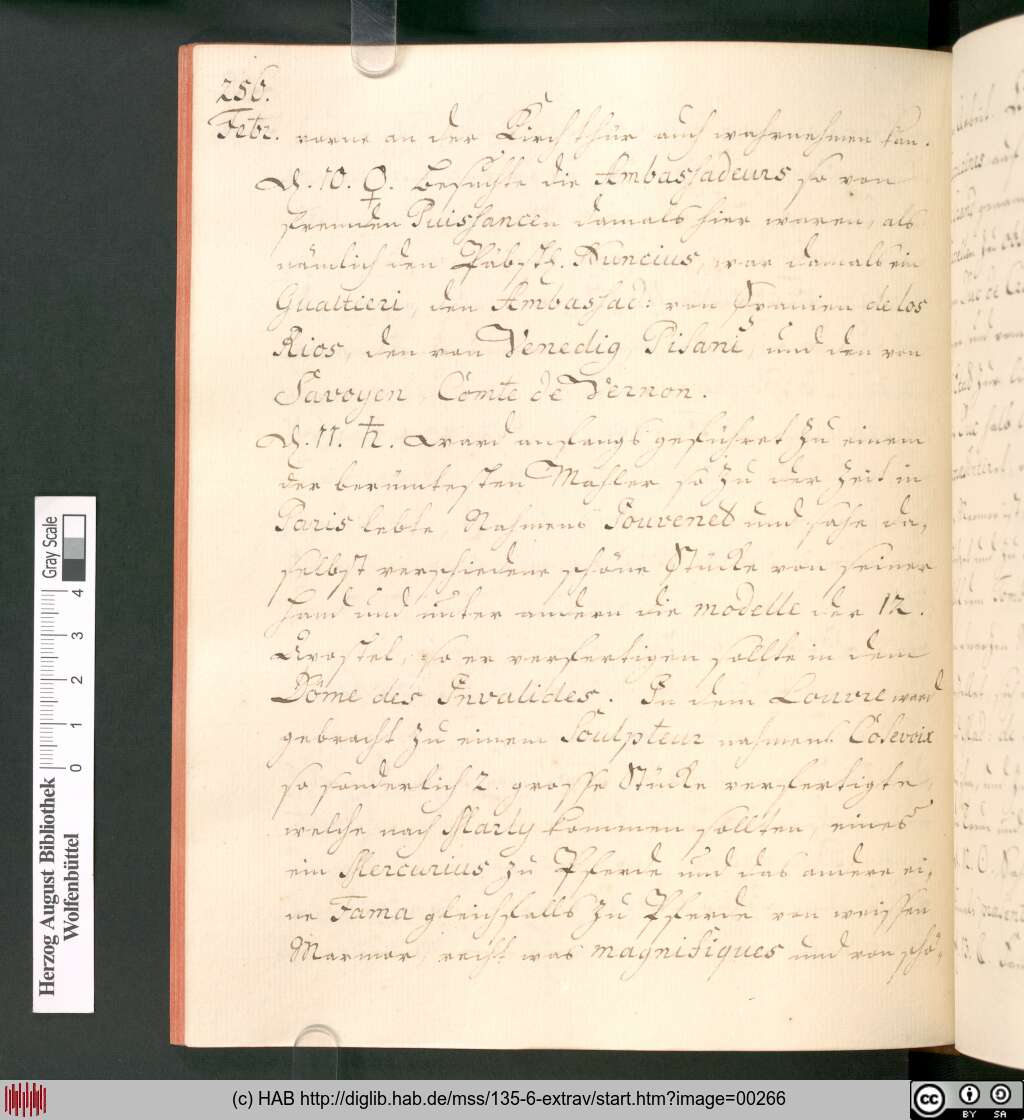 256.
Febr. vorne an der Kirchthür auch wahrnehmen kan.
D. 10. ♀. Besuchte die Ambassadeurs so von
frembden Puissancen damals hier waren, als
nämlich den Päbstl. Nuncius, war damals ein
Gualtieri, den Ambassad: von Spanien de los
Rios, den von Venedig, Pisani, und den von
Savoyen, Comte de Vernon.
D. 11. ♄. Ward anfangs geführet zu einem
der berümtesten Mahler so zu der Zeit in
Paris lebte, Nahmens Jouvenet und sahe da,
selbst verschiedene schöne Stücke von seiner
Hand und unter andern die modelle der 12.
Apostel, so er verfertigen sollte in dem
Dôme des Invalides. In dem Louvre ward
gebracht zu einem Sculpteur nahmens Cosevoix
so sonderlich 2. grosse Stücke verfertigte,
welche nach Marly kommen sollten, eines
ein Mercurius zu Pferde und das andere ei,
ne Fama gleichfalls zu Pferde von weissen
Marmor, recht was magnifiques und von schö,
Herzog August Bibliothek
Wolfenbüttel
0 1 2 3 4
Gray Scale
(c) HAB http://diglib.hab.de/mss/135-6-extrav/start.htm?image=00266
cc BY SA